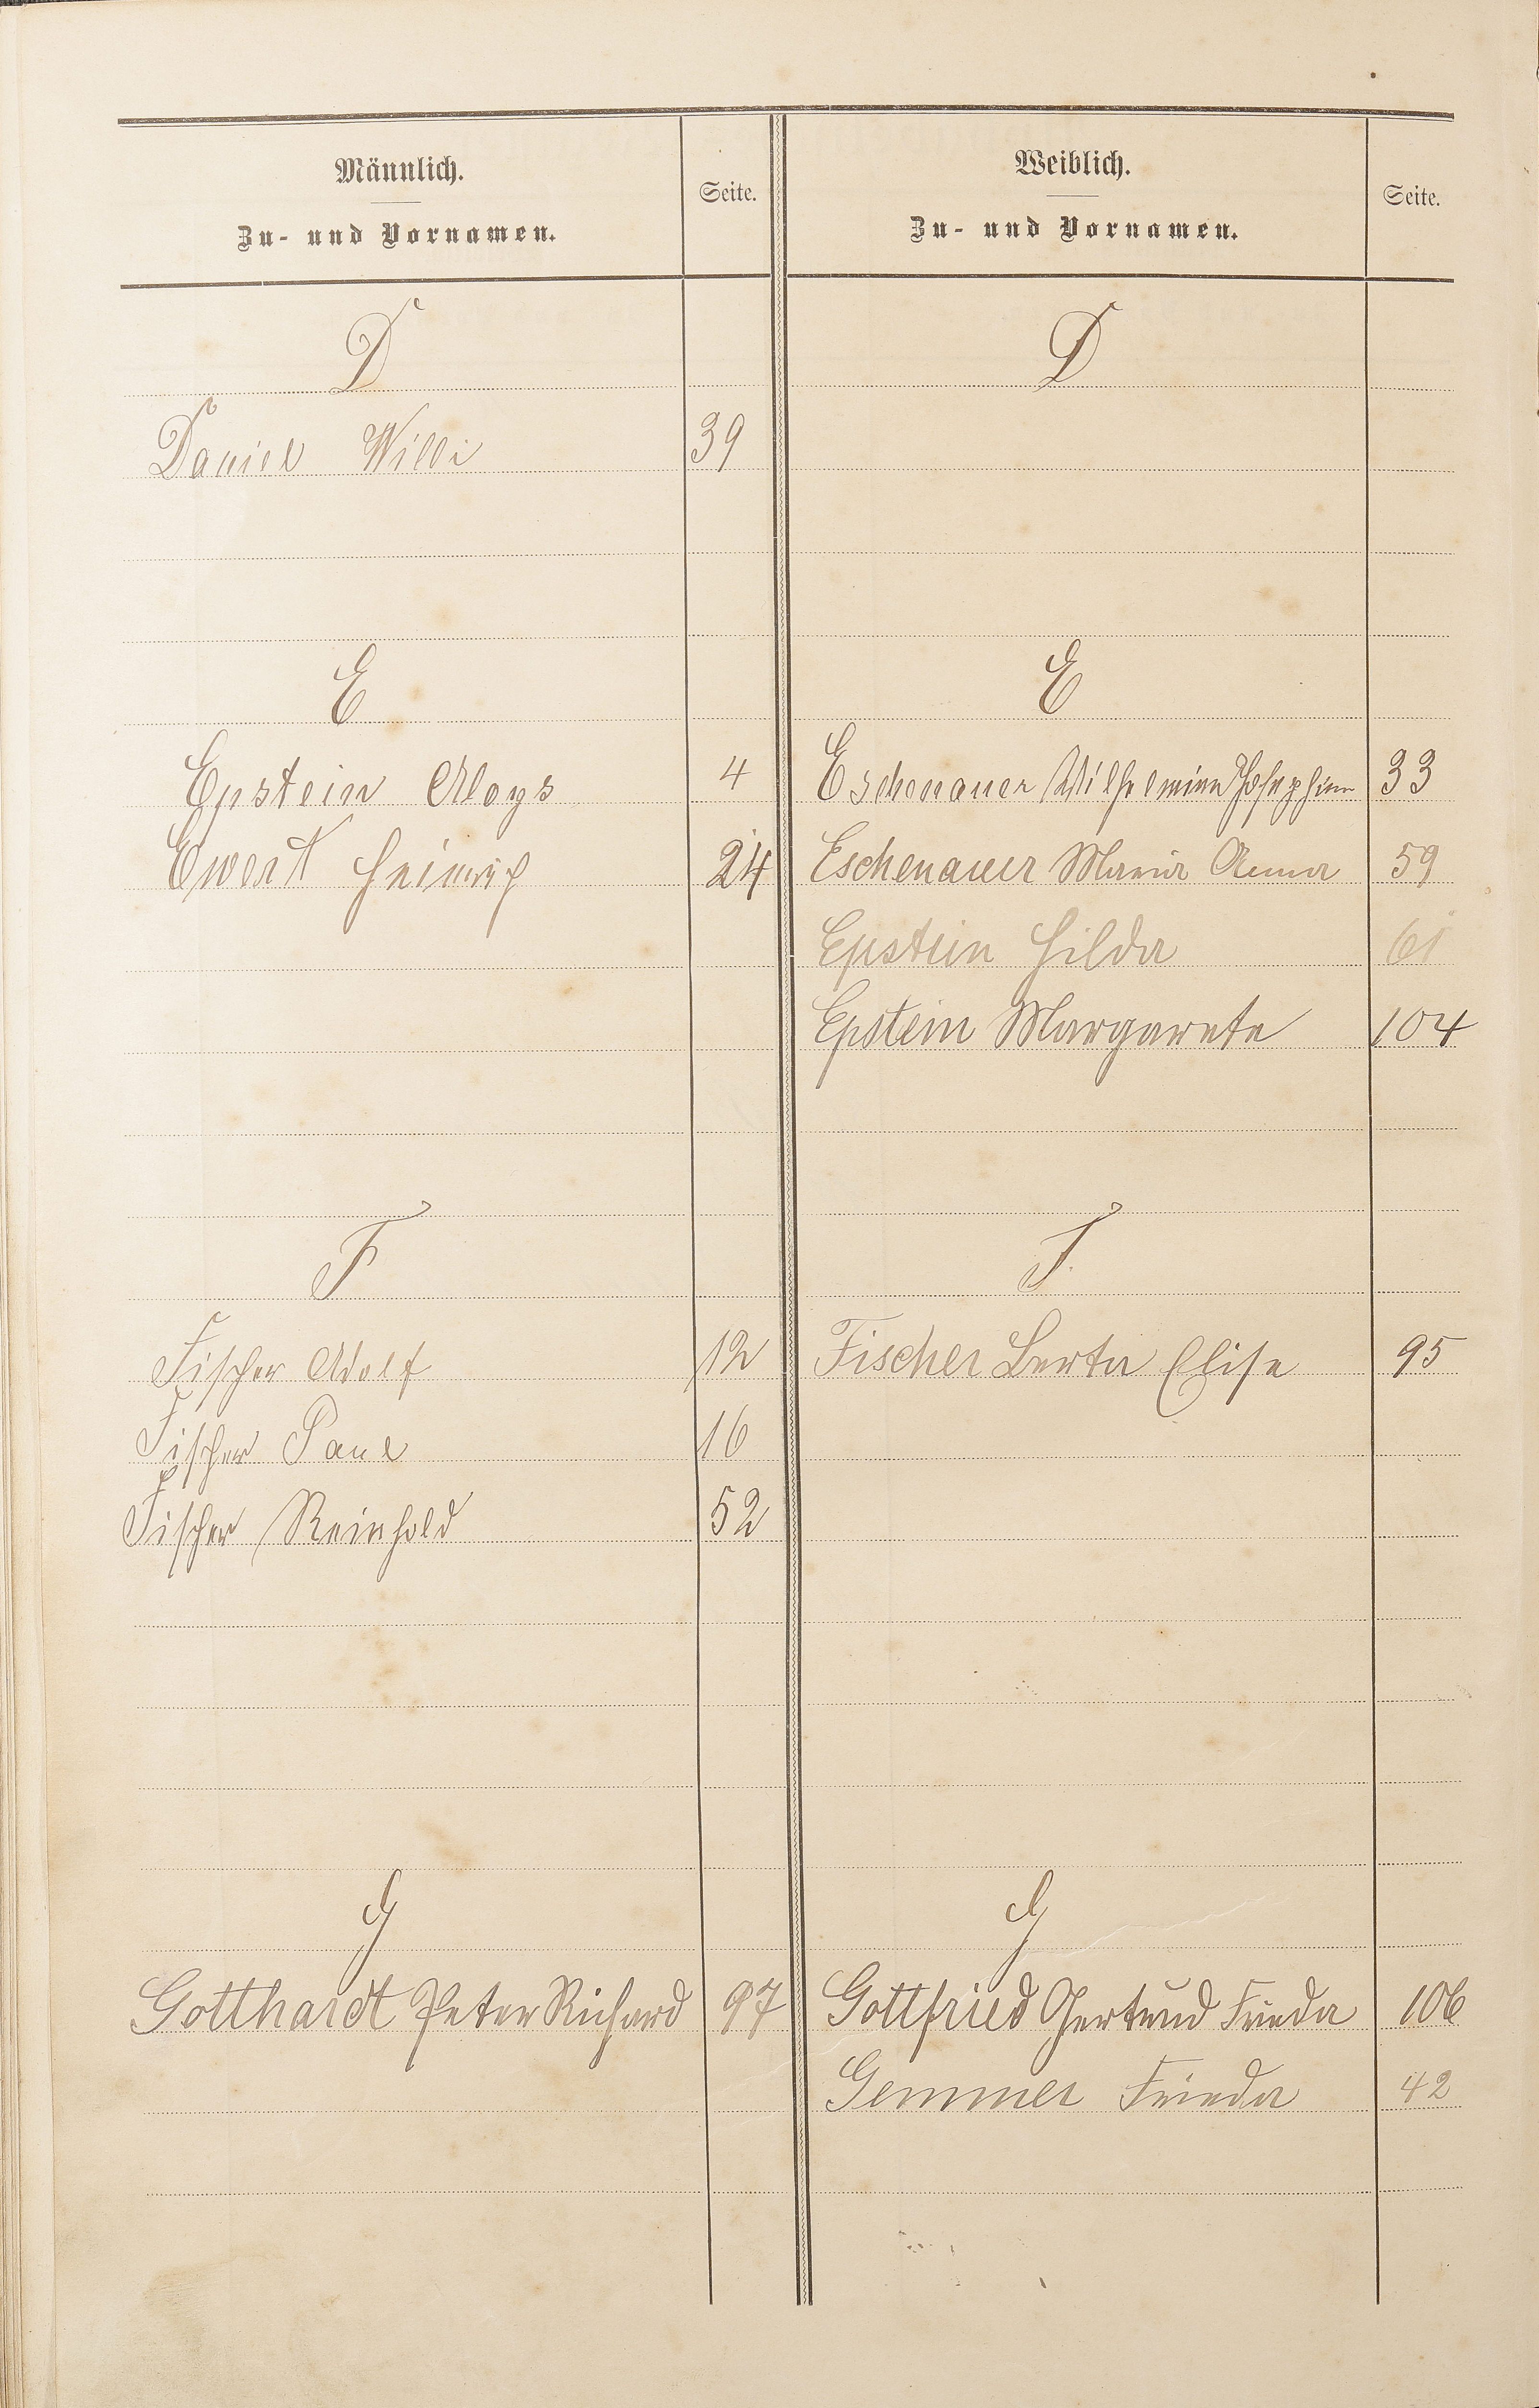 Männlich.
Zu- und Vornamen.
Seite.
Weiblich.
Zu- und Vornamen.
Seite.
D
D
Daniel Willi 39
E
E
Epstein Aloys 4
Eschenauer Wilhelmine Josephine 33
Ewert Heinrich 24
Eschenauer Maria Anna 59
Epstein Hilda 61
Epstein Margarete 104
F
F
Fischer Adolf 12
Fischer Berta Elise 95
Fischer Paul 16
Fischer Reinhold 52
G
G
Gotthardt Peter Richard 97
Gottfried Gertrud Frieda 106
Gemmer Frieda 42